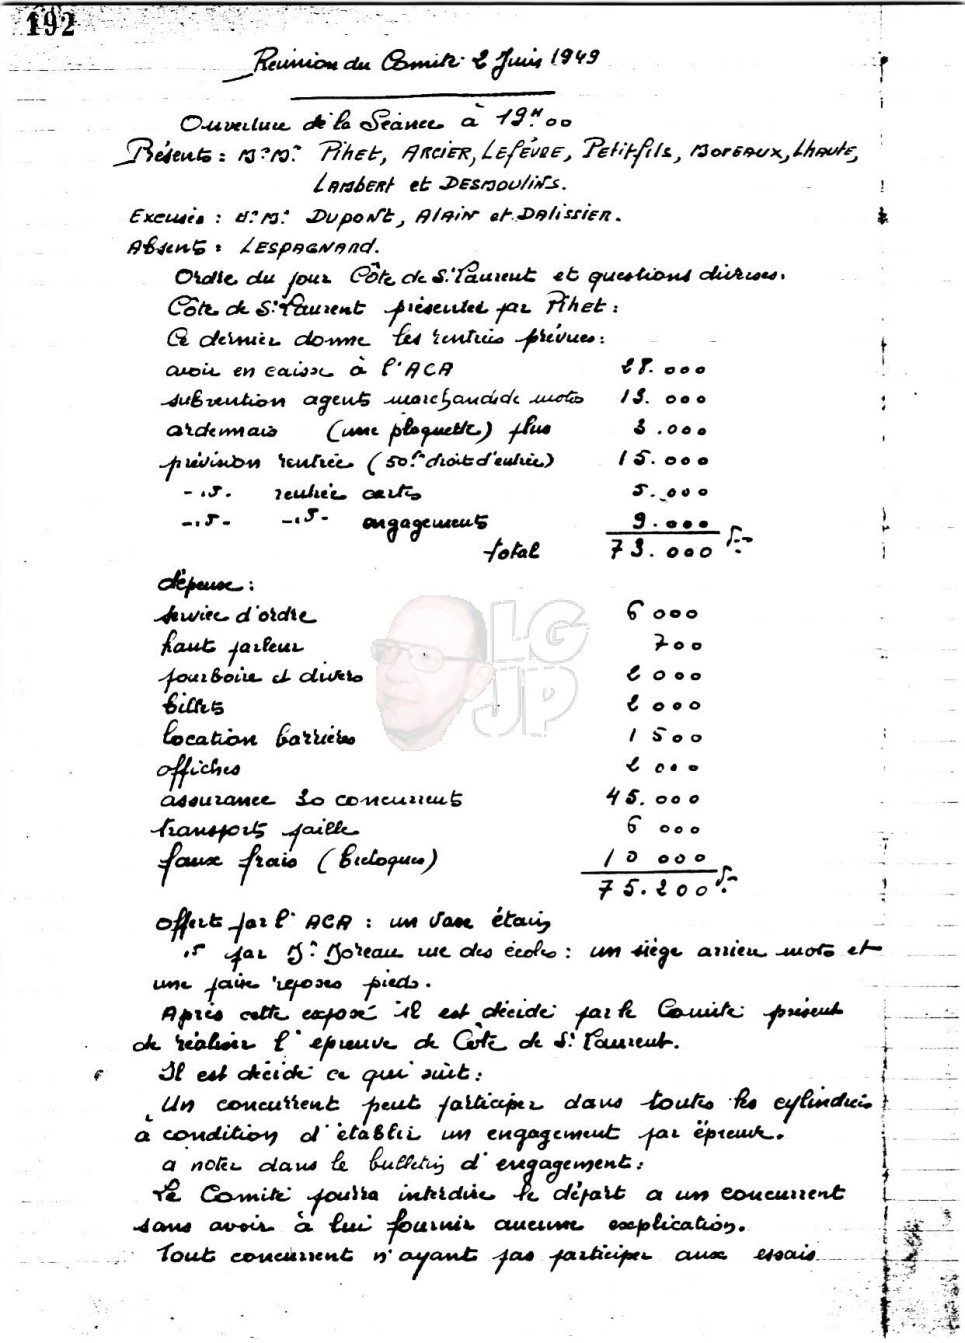 192
Réunion du Comité 2 Juin 1949
Ouverture de la Séance à 19H00
Présents : M.M. Pihet, ARCIER, LEFÉVRE, Petitfils, Boreaux, Lhaute,
LAMBERT et DESMOULINS.
Excusés : M.M. DUPONT, Alain et DALISSIER.
Absents : LESPAGNARD.
Ordre du jour Côte de St Laurent et questions diverses.
Côte de St Laurent présentée par Pihet :
Ce dernier donne les rentrées prévues :
avoir en caisse à l'ACA 28.000
subvention agents marchands de motos 13.000
ardennais (une plaquette) plus 3.000
prévision rentrée (50f droit d'entrée) 15.000
-.id. rentrée cartes 5.000
-.id- -.id- engagements 9.000
total 73.000 f.-
dépense :
service d'ordre 6 000
haut parleur 700
pourboire et divers 2 000
billets 2 000
location barrières 1 500
affiches 2 000
assurance 30 concurrents 45.000
transports paille 6 000
faux frais (breloques) 10 000
75.200 f.-
offerts par l'ACA : un vase étain
id par Mr Boreau rue des écoles : un siège arrière moto et
une paire reposes pieds.
Après cette exposé il est décidé par le Comité présent
de réaliser l'épreuve de Côte de St Laurent.
Il est décidé ce qui suit :
Un concurrent peut participer dans toutes les cylindrées
à condition d'établir un engagement par épreuve.
a noter dans le bulletin d'engagement :
Le Comité pourra interdire le départ a un concurrent
sans avoir à lui fournir aucune explication.
Tout concurrent n'ayant pas participer aux essais
LG
JP